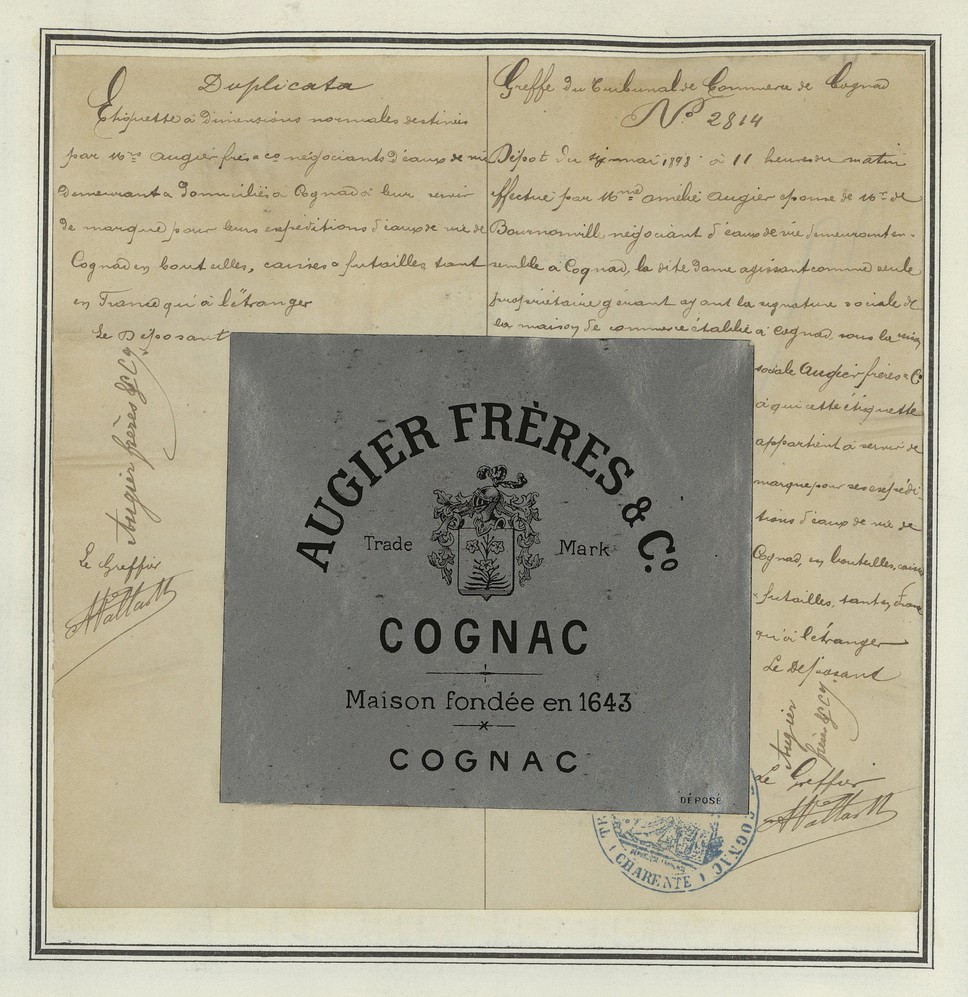 Duplicata
Etiquette à Dimensions normales destinée
par Mrs Augier frères & Co négociants d'eaux de vie
demeurant à domiciliés à Cognac à leur servir
de marque pour leurs expéditions d'eaux de vie de
Cognac en bouteilles, caisses & futailles tant
en France qu'à l'étranger
Le Déposant
Augier frères & Cy
Le Greffier
Greffe du Tribunal de Commerce de Cognac
No 2814
Dépot du mai 1898 à 11 heures du matin
effectué par Mme Amélie Augier épouse de Mr de
Bournonville négociant d'eaux de vie demeurant en-
semble à Cognac, la dite Dame agissant comme seule
propriétaire gérant ayant la signature sociale de
la maison de commerce établie à Cognac sous la raison
sociale Augier frères & Co
à qui cette étiquette
appartient à servir de
marque pour ses expédi
tions d'eaux de vie de
Cognac, en bouteilles, caisses
& futailles, tant en France
qu'à l'étranger
Le Déposant
Augier
frères & Cy
Le Greffier
AUGIER FRÈRES & Co.
Trade Mark
COGNAC
Maison fondée en 1643
COGNAC
DÉPOSÉ
COGNAC
(CHARENTE)